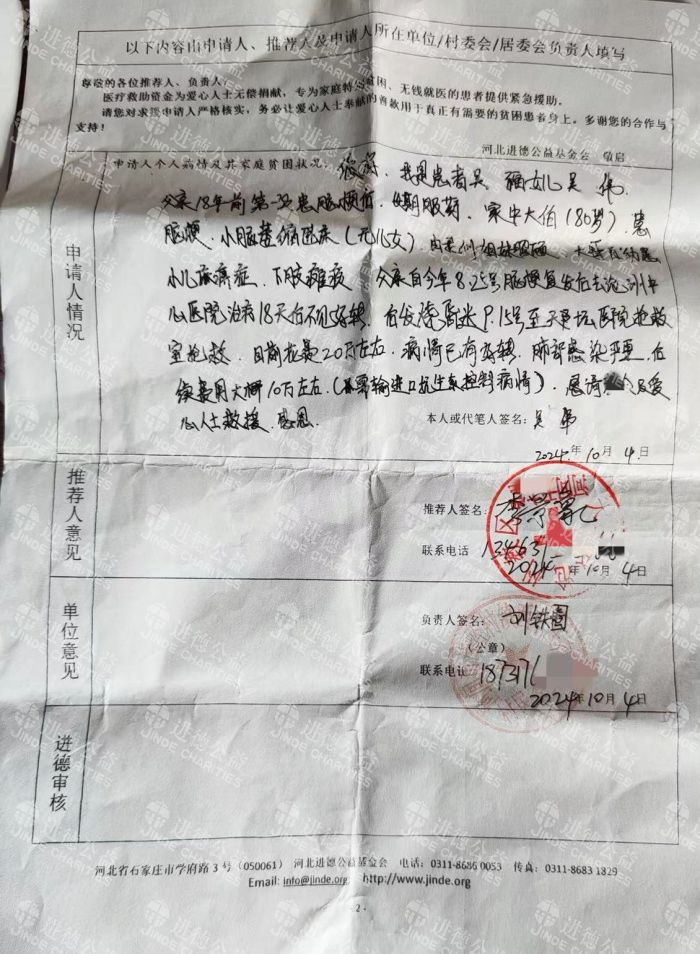 以下内容由申请人、推荐人及申请人所在单位/村委会/居委会负责人填写
尊敬的各位推荐人、负责人:
医疗救助资金为爱心人士无偿捐献，专为家庭特别贫困、无钱就医的患者提供紧急援助。
请您对求援申请人严格核实，务必让爱心人士奉献的善款用于真正有需要的贫困患者身上。多谢您的合作与
支持！
河北进德公益基金会 敬启
申请人情况
申请人个人病情及其家庭贫困状况:
父亲18年前第一次患脑梗后，长期服药，家中大伯(80岁)，患
脑梗，小脑萎缩卧床(无儿女)，由
小儿麻痹症，下肢瘫痪 父亲自今年8.25号脑梗复发后去沧州中
心医院治病18天后不见好转，后发烧昏迷9.15号至 医院抢救
室抢救，目前花费20万左右，病情已有好转，肺部感染严重，后
续费用大概10万左右(需要输进口抗生素控制病情)，恳请 爱
心人士救援，感恩
本人或代笔人签名:
2024年10月4日
推荐人意见
推荐人签名:
联系电话 134631
2024年10月4日
单位意见
负责人签名: 刘铁圈
(公章)
联系电话: 187317
2024年10月4日
进德审核
河北省石家庄市学府路3号 (050061) 河北进德公益基金会 电话: 0311-8686 0053 传真: 0311-8683 1829
Email: info@jinde.org http://www.jinde.org
- 2 -
进德公益
JINDE CHARITIES